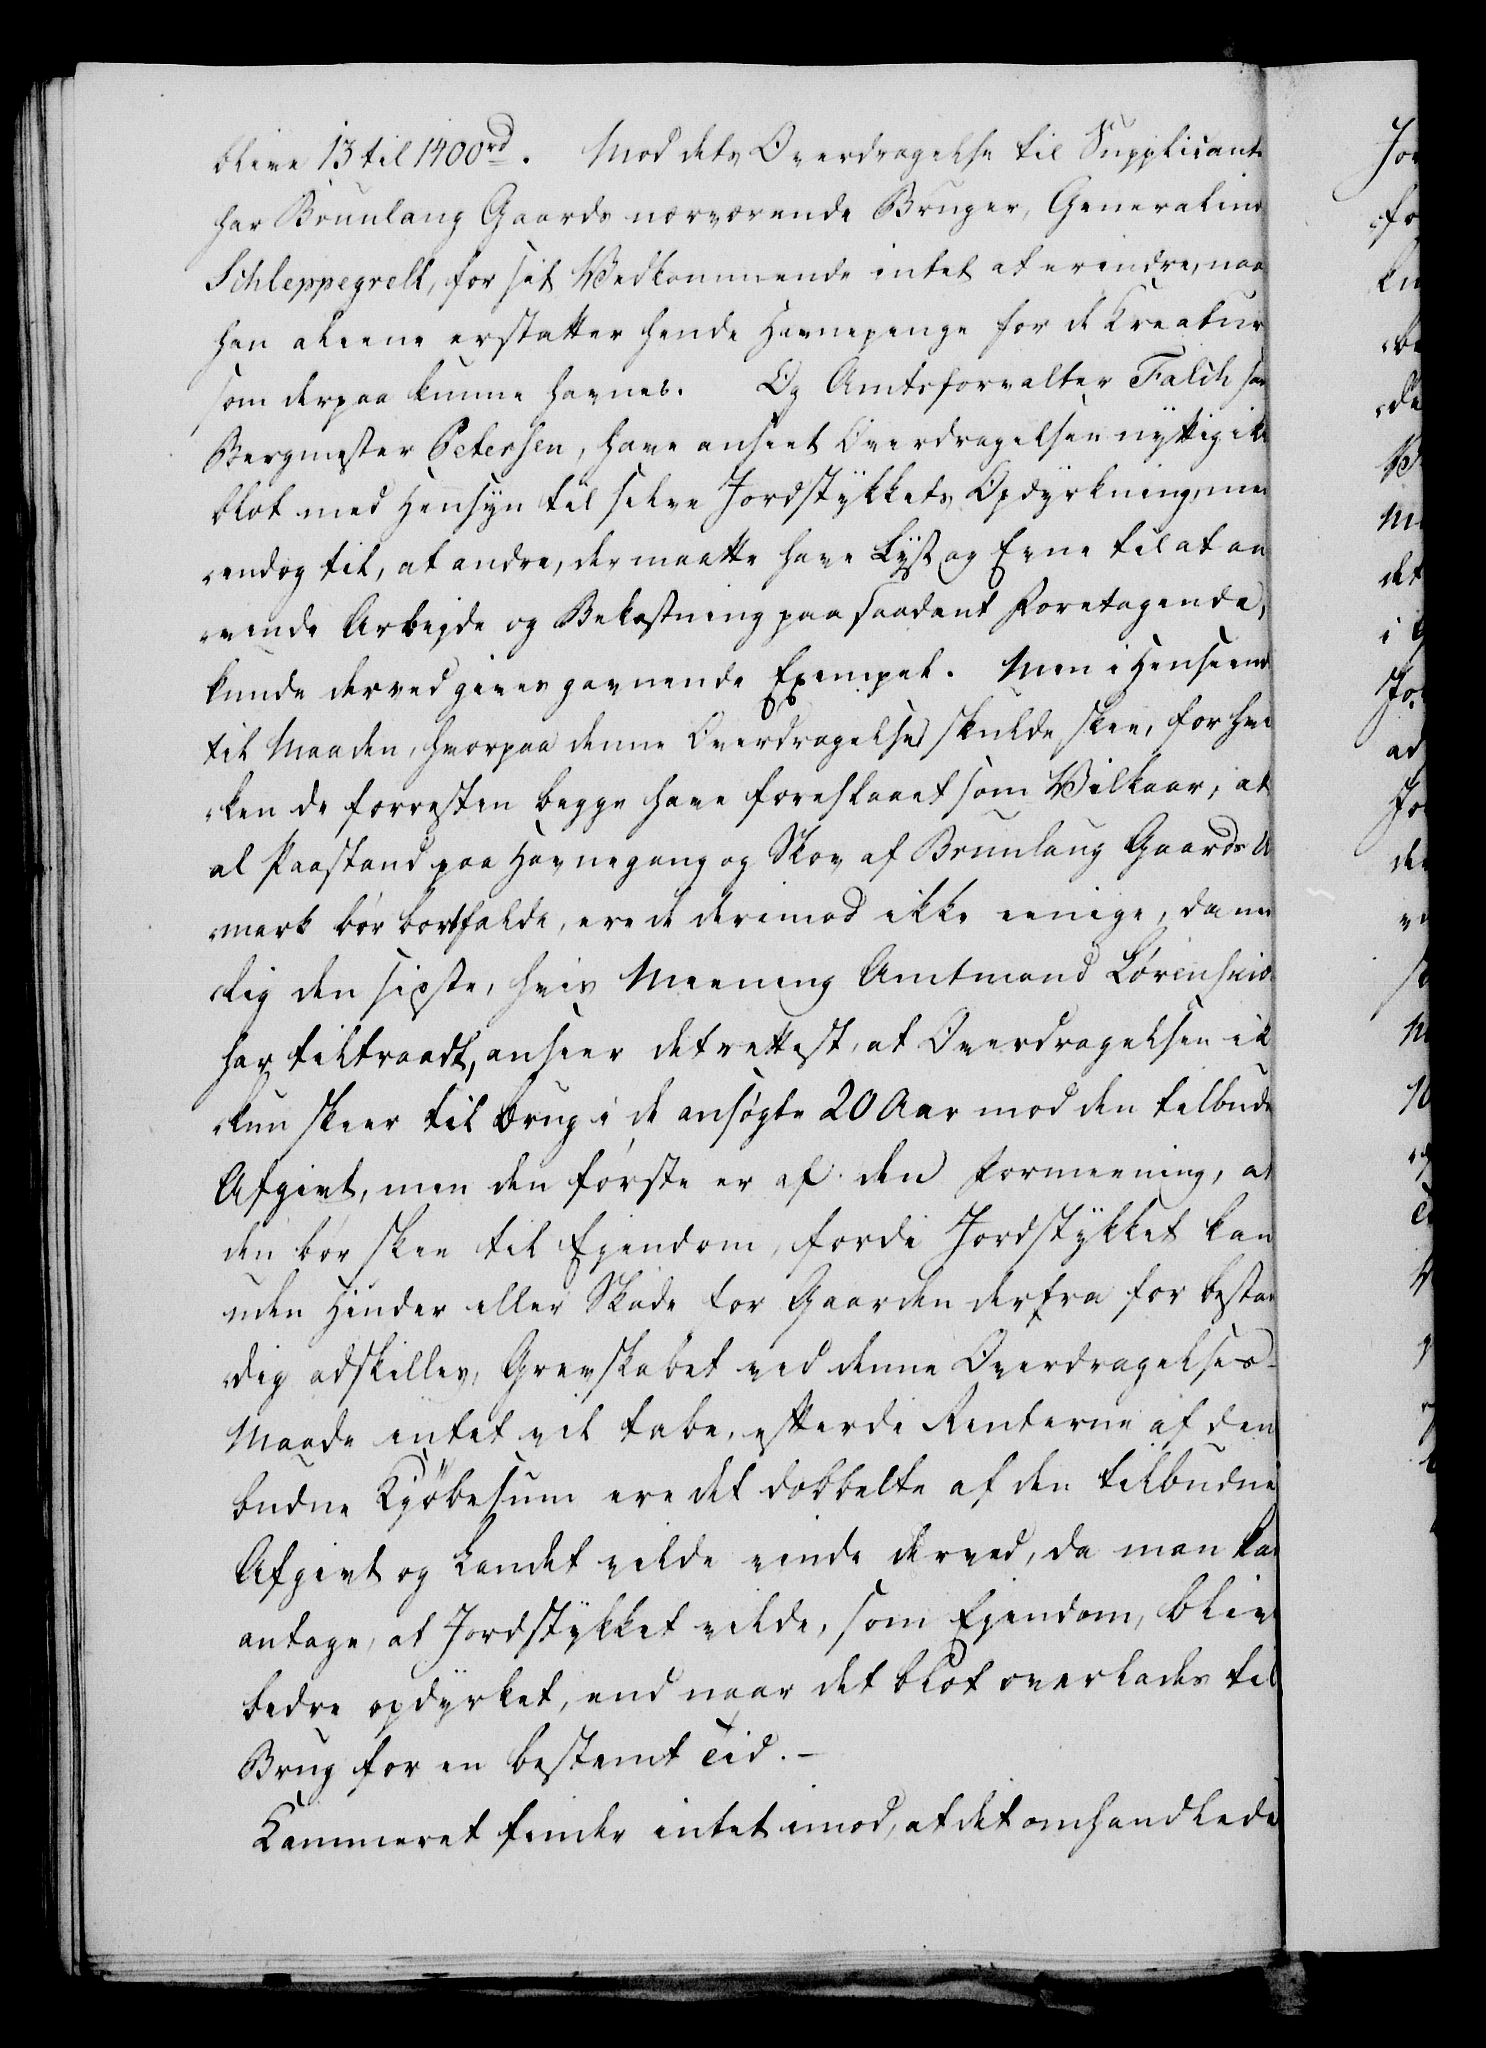 blive 13 til 1400rd. Mod dets Overdragelse til Supplicant
har Brunlaug Gaards nærværende Bruger, Generalind
Schleppegrell, for sit Vedkommende intet at erindre, naa
han aleene erstatter hende Havnepenge for de Kreatur
som derpaa kunne havnes. Og Amtsforvalter Falch sa
Bergmester Petersen, have anseet Overdragelsen nyttig ikk
blot med Hensyn til selve Jordstykkets Opdyrkning, men
endog til, at andre, der maatte have Lyst og Evne til at an
vende Arbejde og Bekostning paa saadant Foretagende,
kunde derved gives gavnende Exempel. Men i Henseend
til Maaden, hvorpaa denne Overdragelse skulde skee, for hvil
ken de forresten begge have foreslaaet som Vilkaar, at
al Paastand paa Havnegang og Skov af Brunlaug Gaards U
mark bør bortfalde, ere de derimod ikke eenige, da nem
lig den sidste, hvis Meening Amtmand Lövenskio
har tiltraadt, anseer det rettest, at Overdragelsen ik
kun skeer til Brug i de ansøgte 20 Aar mod den tilbudne
Afgivt, men den første er af den Formeening, at
den bør skee til Ejendom, fordi Jordstykket kan
uden Hinder eller Skade for Gaarden derfra for bestan
dig adskilles, Grevskabet ved denne Overdragelses-
Maade intet vil tabe, efterdi Renterne af den
budne Kjöbesum ere det dobbelte af den tilbudne
Afgivt og Landet vilde vinde derved, da man kan
antage, at Jordstykket vilde, som Ejendom, blive
bedre opdyrket, end naar det blot overlades til
Brug for en bestemt Tid. –
Kammeret finder intet imod, at det omhandlede